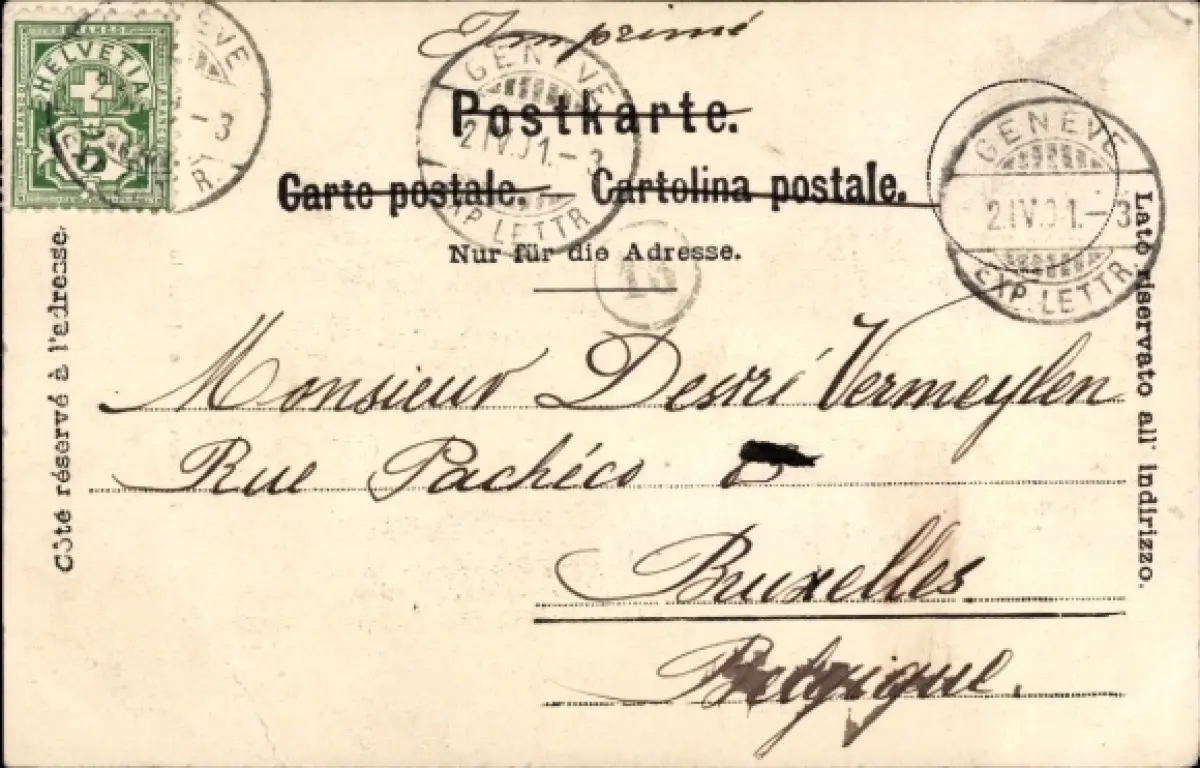 Imprimé
FRANCO
FRANCO
FRANCO
HELVETIA
5
GENÈVE
-3
GENÈVE
2.IV.01.-3
EXP. LETTR.
GENÈVE
2.IV.01.-3
EXP. LETTR.
Postkarte.
Carte postale. — Cartolina postale.
Nur für die Adresse.
Côté réservé à l'adresse.
Lato riservato all' indirizzo.
Monsieur Desiré Vermeylen
Rue Pachéco
Bruxelles
Belgique.